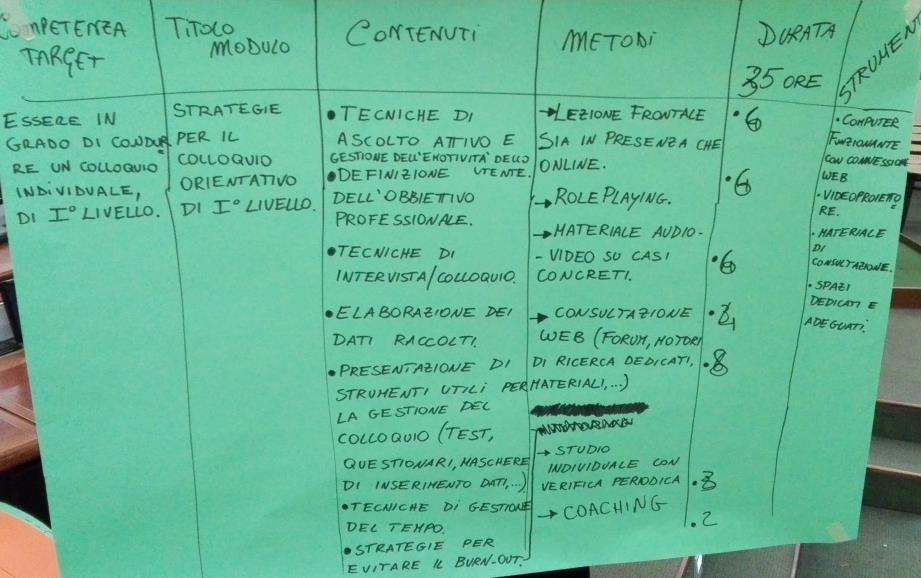 COMPETENZA
TARGET
ESSERE IN
GRADO DI CONDUR
RE UN COLLOQUIO
INDIVIDUALE,
DI I° LIVELLO.
TITOLO
MODULO
STRATEGIE
PER IL
COLLOQUIO
ORIENTATIVO
DI I° LIVELLO.
CONTENUTI
• TECNICHE DI
ASCOLTO ATTIVO E
GESTIONE DELL'EMOTIVITA' DELLO
UTENTE.
• DEFINIZIONE
DELL'OBBIETTIVO
PROFESSIONALE.
• TECNICHE DI
INTERVISTA/COLLOQUIO.
• ELABORAZIONE DEI
DATI RACCOLTI.
• PRESENTAZIONE DI
STRUMENTI UTILI PER
LA GESTIONE DEL
COLLOQUIO (TEST,
QUESTIONARI, MASCHERE
DI INSERIMENTO DATI,...)
• TECNICHE DI GESTIONE
DEL TEMPO.
• STRATEGIE PER
EVITARE IL BURN-OUT.
METODI
→ LEZIONE FRONTALE
SIA IN PRESENZA CHE
ONLINE.
→ ROLE PLAYING.
→ MATERIALE AUDIO-
- VIDEO SU CASI
CONCRETI.
→ CONSULTAZIONE
WEB (FORUM, MOTORI
DI RICERCA DEDICATI,
MATERIALI,...)
→ STUDIO
INDIVIDUALE CON
VERIFICA PERIODICA
→ COACHING
DURATA
35 ORE
• 6
• 6
• 6
• 8
• 3
• 2
STRUMENTI
• COMPUTER
FUNZIONANTE
CON CONNESSIONE
WEB
• VIDEOPROIETTO
RE.
• MATERIALE
DI
CONSULTAZIONE.
• SPAZI
DEDICATI E
ADEGUATI.